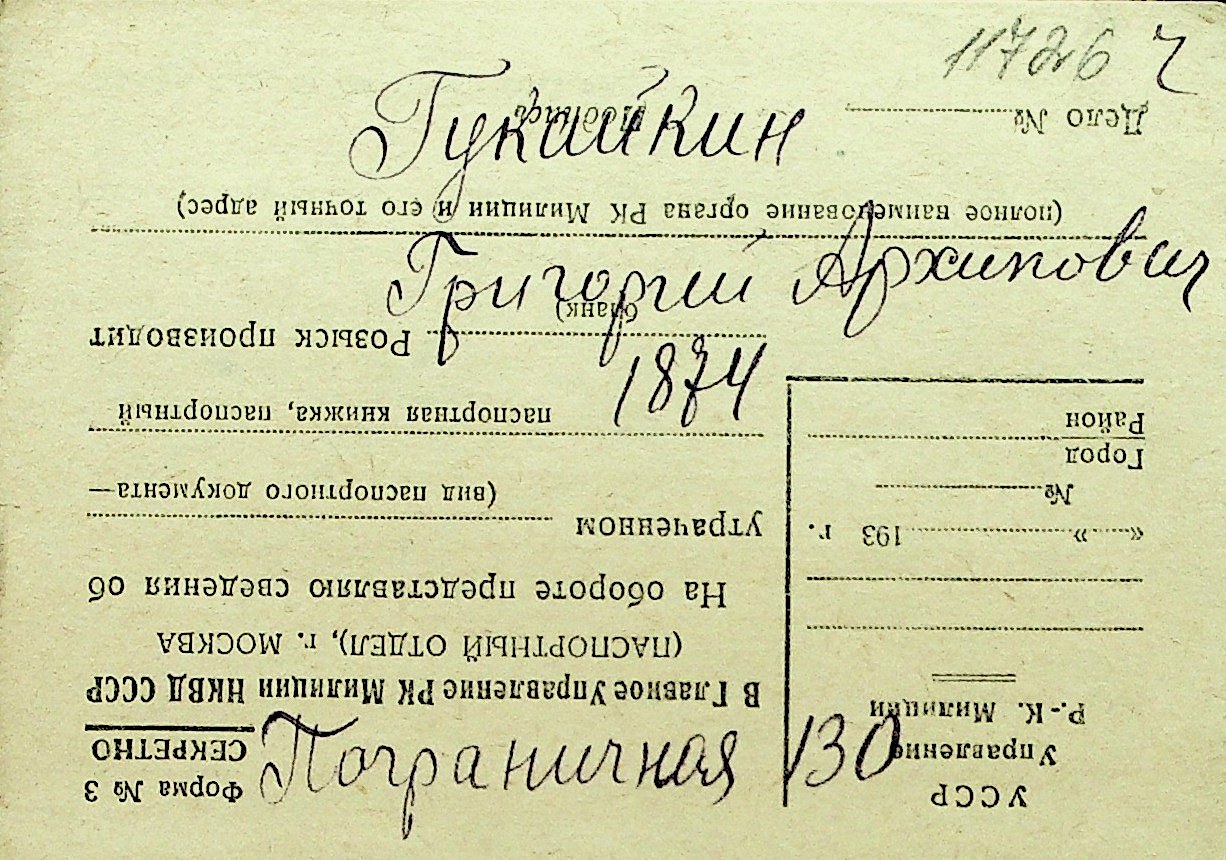 11726 ч
Гукайкин
Григорий Архипович
1874
Пограничная 130
УССР
Управление
Р.-К. Милиции
« » 193 г.
№
Город
Район
Форма № 3
СЕКРЕТНО
В Главное Управление РК Милиции НКВД СССР
(ПАСПОРТНЫЙ ОТДЕЛ), г. МОСКВА
На обороте представляю сведения об
утраченном
(вид паспортного документа—
паспортная книжка, паспортный
бланк)
Розыск производит
(полное наименование органа РК Милиции и его точный адрес)
Дело №
Подпись